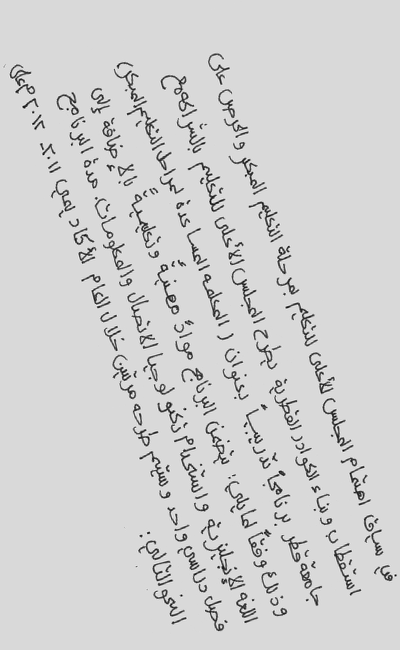 في سياق اهتمام المجلس الأعلى للتعليم بمرحلة التعليم المبكر والحرص على
استقطاب وبناء الكوادر القطرية يطرح المجلس الأعلى للتعليم بالشراكة مع
جامعة قطر برنامجاً تدريبياً بعنوان (المعلمة المساعدة لمراحل التعليم المبكر)
وذلك وفقاً لما يلي: يتضمن البرنامج مواد مهنية وتعليمية بالإضافة إلى
اللغة الإنجليزية واستخدام تكنولوجيا الاتصال والمعلومات. مدة البرنامج
فصل دراسي واحد وسيتم طرحه مرتين خلال العام الأكاديمي ٢٠١١ـ٢٠١٢م على
النحو التالي: